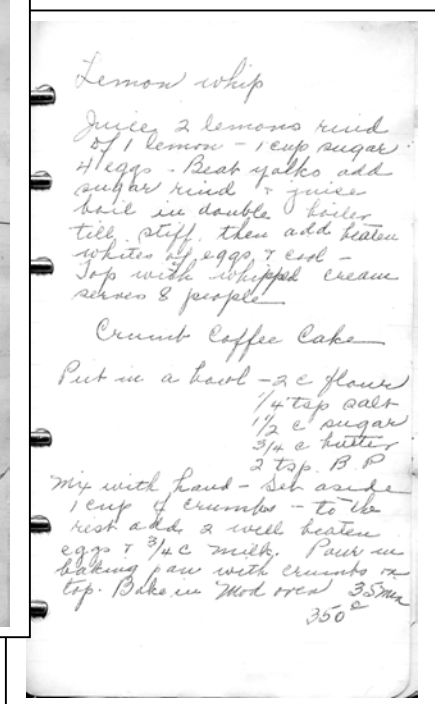 Lemon whip
Juice 2 lemons rind
of 1 lemon - 1 cup sugar
4 eggs - Beat yolks add
sugar rind & juice
boil in double boiler
till stiff, then add beaten
whites of eggs & cool -
Top with whipped cream
serves 8 people
Crumb Coffee Cake
Put in a bowl - 2 c flour
1/4 tsp salt
1 1/2 c sugar
3/4 c butter
2 tsp. B P
Mix with hand - Set aside
1 cup of crumbs - to the
rest add 2 well beaten
eggs & 3/4 c milk. Pour in
baking pan with crumbs on
top. Bake in Mod oven 35 min
350°